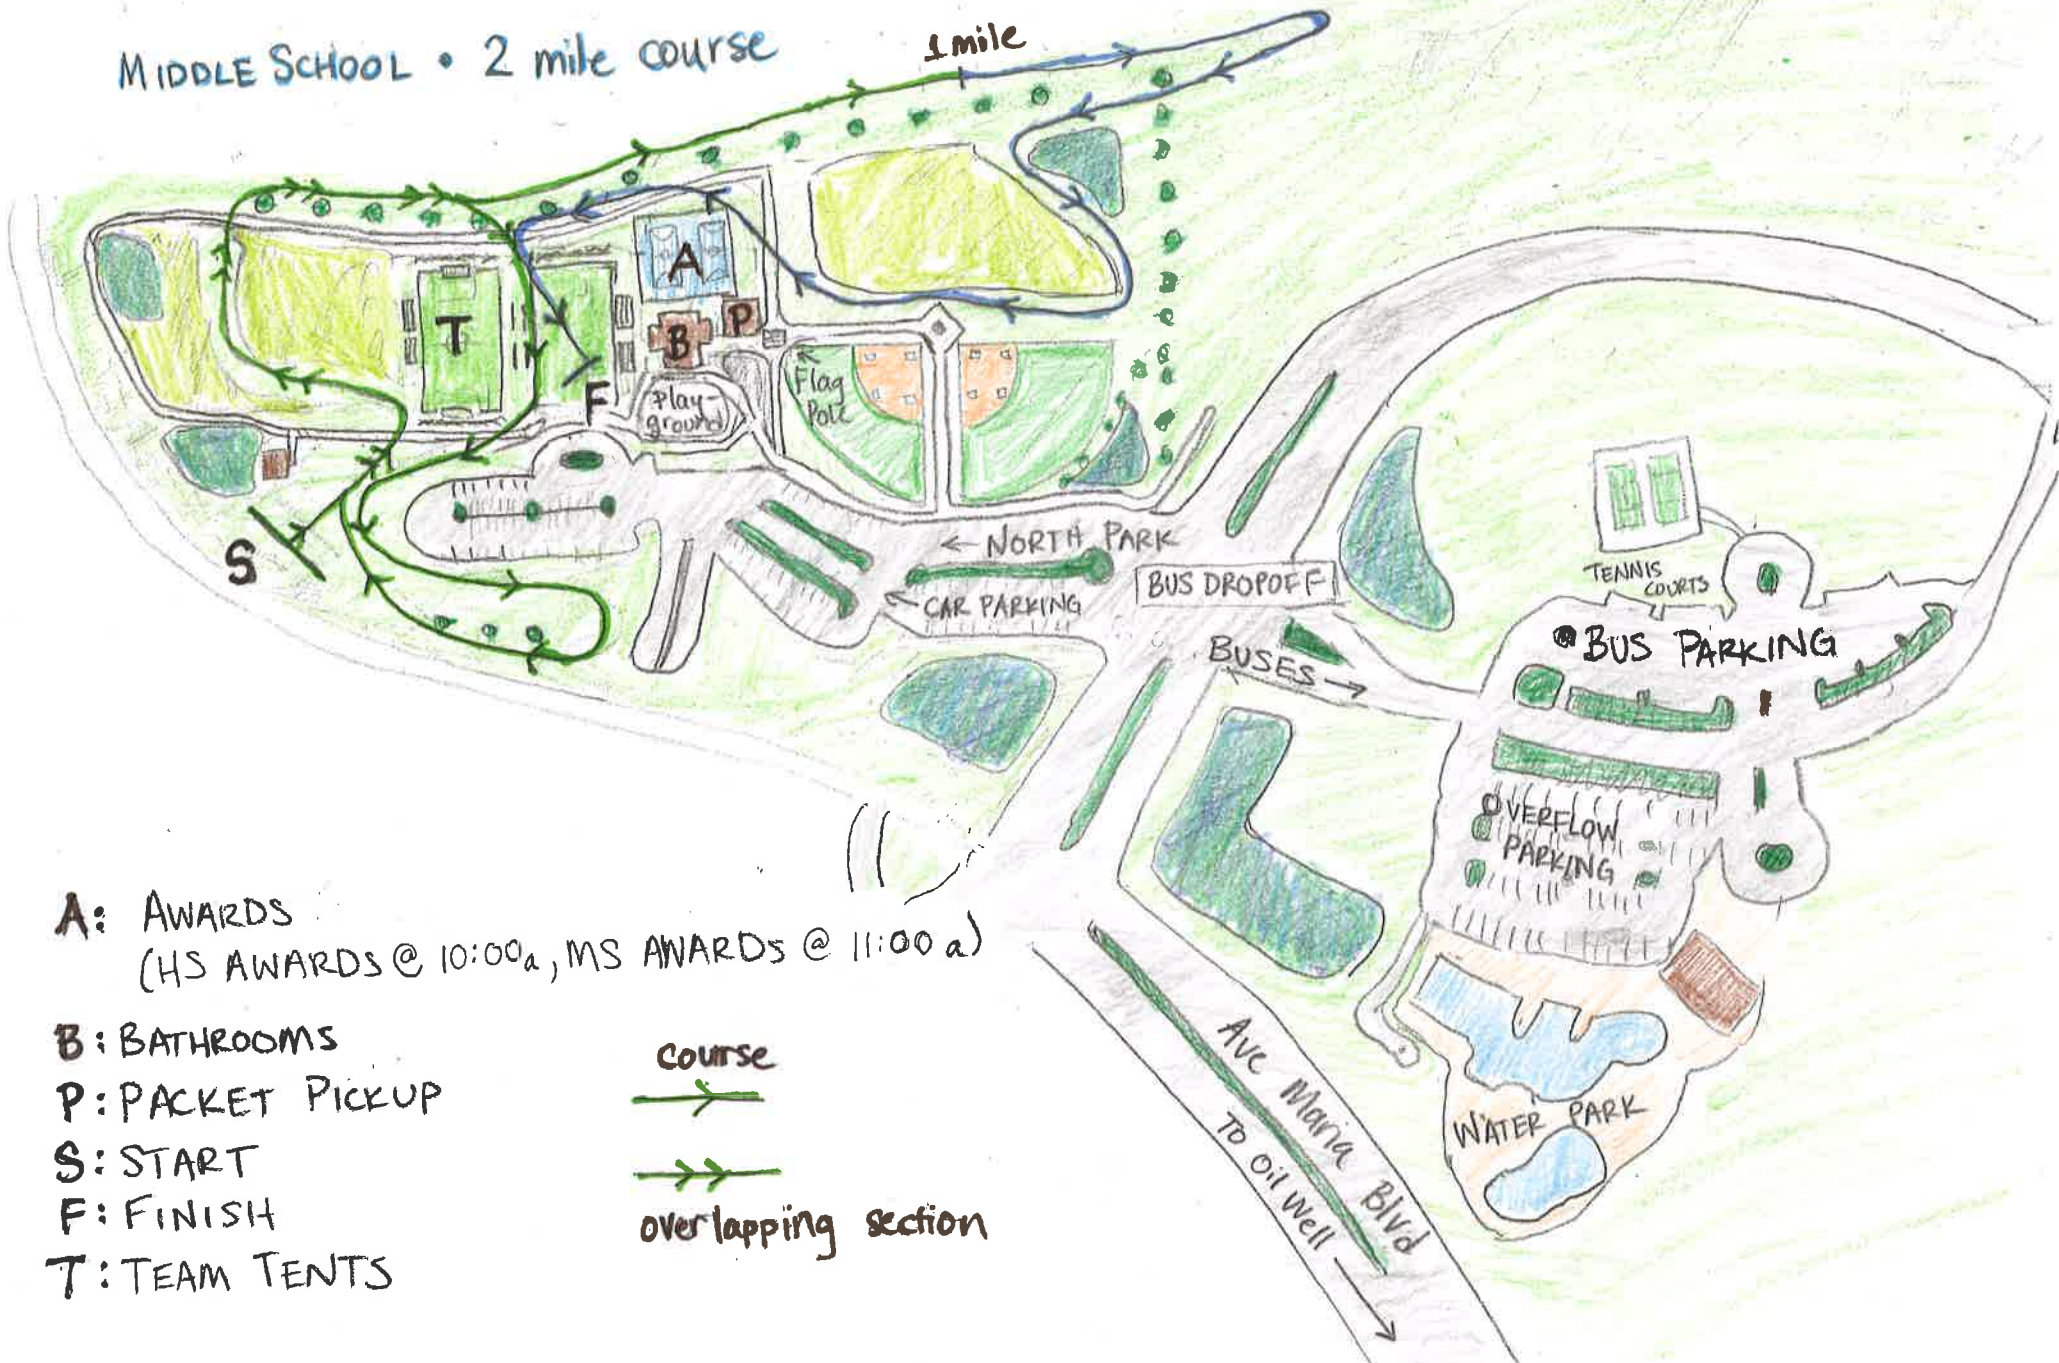 MIDDLE SCHOOL • 2 mile course
1 mile
A
T
B
P
F
Play-
ground
Flag
Pole
S
← NORTH PARK
← CAR PARKING
BUS DROPOFF
BUSES →
TENNIS
COURTS
BUS PARKING
OVERFLOW
PARKING
WATER PARK
Ave Maria Blvd
TO Oil Well →
A: AWARDS
(HS AWARDS @ 10:00a, MS AWARDS @ 11:00a)
B: BATHROOMS
P: PACKET PICKUP
S: START
F: FINISH
T: TEAM TENTS
course
overlapping section